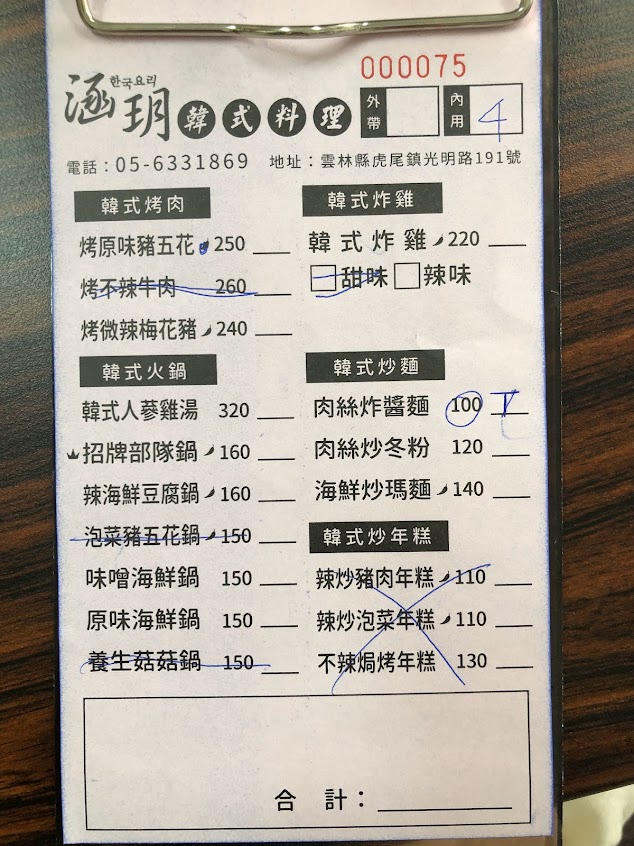 000075
한국요리
涵玥韓式料理 外帶 內用 4
電話：05-6331869 地址：雲林縣虎尾鎮光明路191號
韓式烤肉
烤原味豬五花 250
烤不辣牛肉 260
烤微辣梅花豬 240
韓式火鍋
韓式人蔘雞湯 320
招牌部隊鍋 160
辣海鮮豆腐鍋 160
泡菜豬五花鍋 150
味噌海鮮鍋 150
原味海鮮鍋 150
養生菇菇鍋 150
韓式炸雞
韓式炸雞 220
甜味 辣味
韓式炒麵
肉絲炸醬麵 100
肉絲炒冬粉 120
海鮮炒瑪麵 140
韓式炒年糕
辣炒豬肉年糕 110
辣炒泡菜年糕 110
不辣焗烤年糕 130
合計：